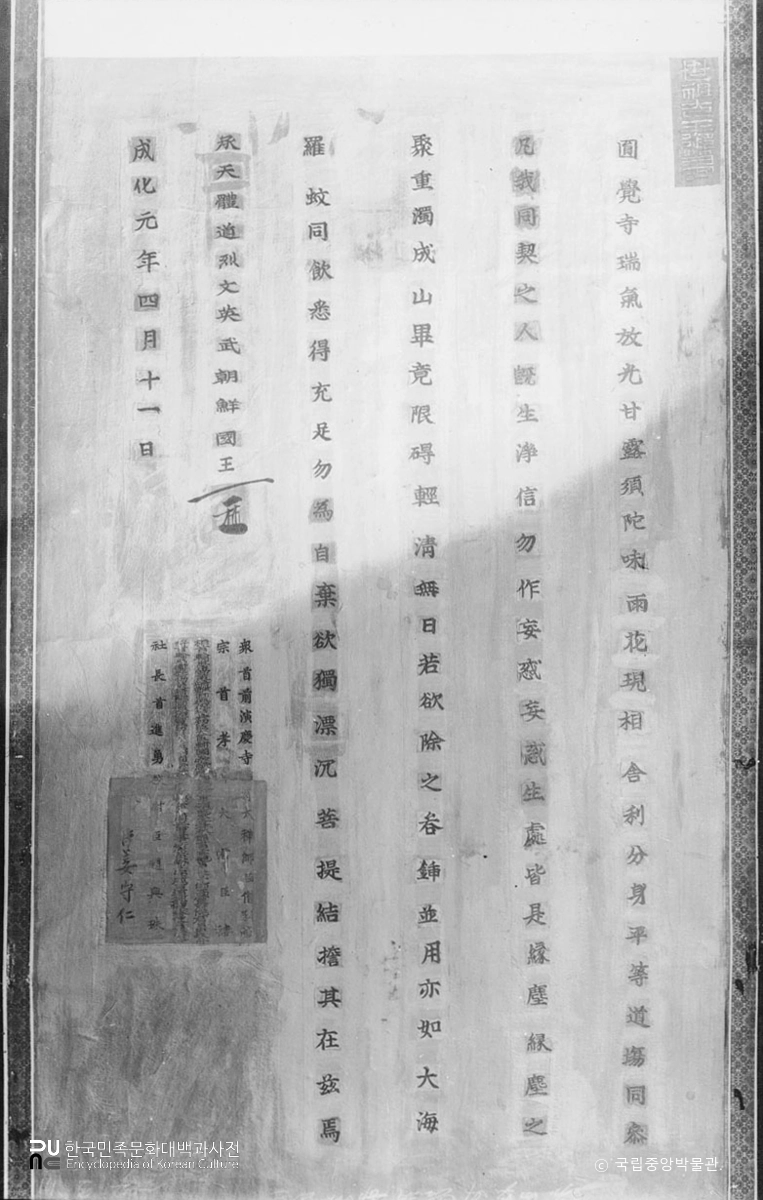 圓覺寺瑞氣放光甘露須陀味雨花現相舍利分身平等道場同叅
凡我同契之人旣生淨信勿作妄惑妄惑生處皆是緣塵緣塵之
聚重濁成山畢竟限碍輕淸無日若欲除之呑鍤並用亦如大海
羅 蚊同飮悉得充足勿爲自棄欲獨漂沉菩提結擔其在玆焉
承天體道烈文英武朝鮮國王
成化元年四月十一日
衆首前演慶寺
宗首 孝
社長首進勇
姜守仁
한국민족문화대백과사전
Encyclopedia of Korean Culture
© 국립중앙박물관